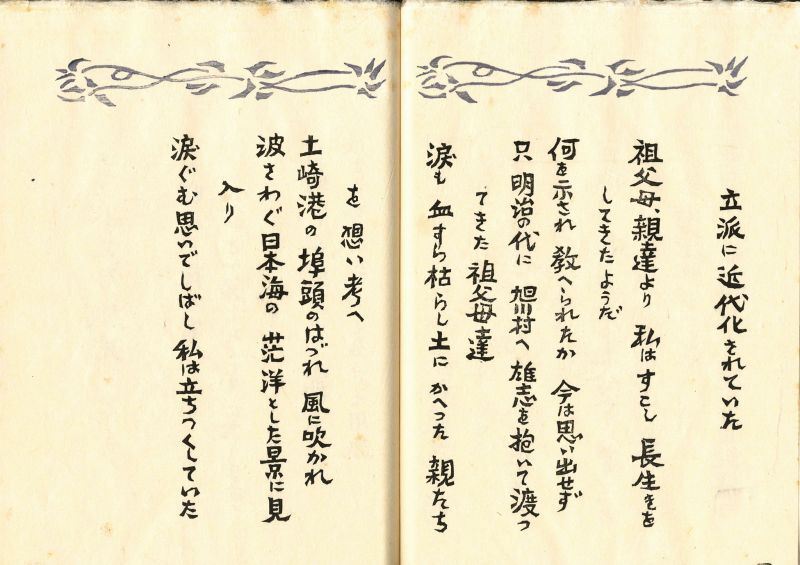 立派に近代化されていた
祖父母、親達より 私はすこし 長生きを
してきたようだ
何を示され 教へられたか 今は思い出せず
只 明治の代に 旭川村へ 雄志を抱いて 渡っ
てきた 祖父母達
涙も 血すら枯らし土に かへった 親たち
を 想い 考へ
土崎港の 埠頭のはづれ 風に吹かれ
波さわぐ日本海の 茫洋とした景に見
入り
涙ぐむ思いでしばし 私は立ちつくしていた